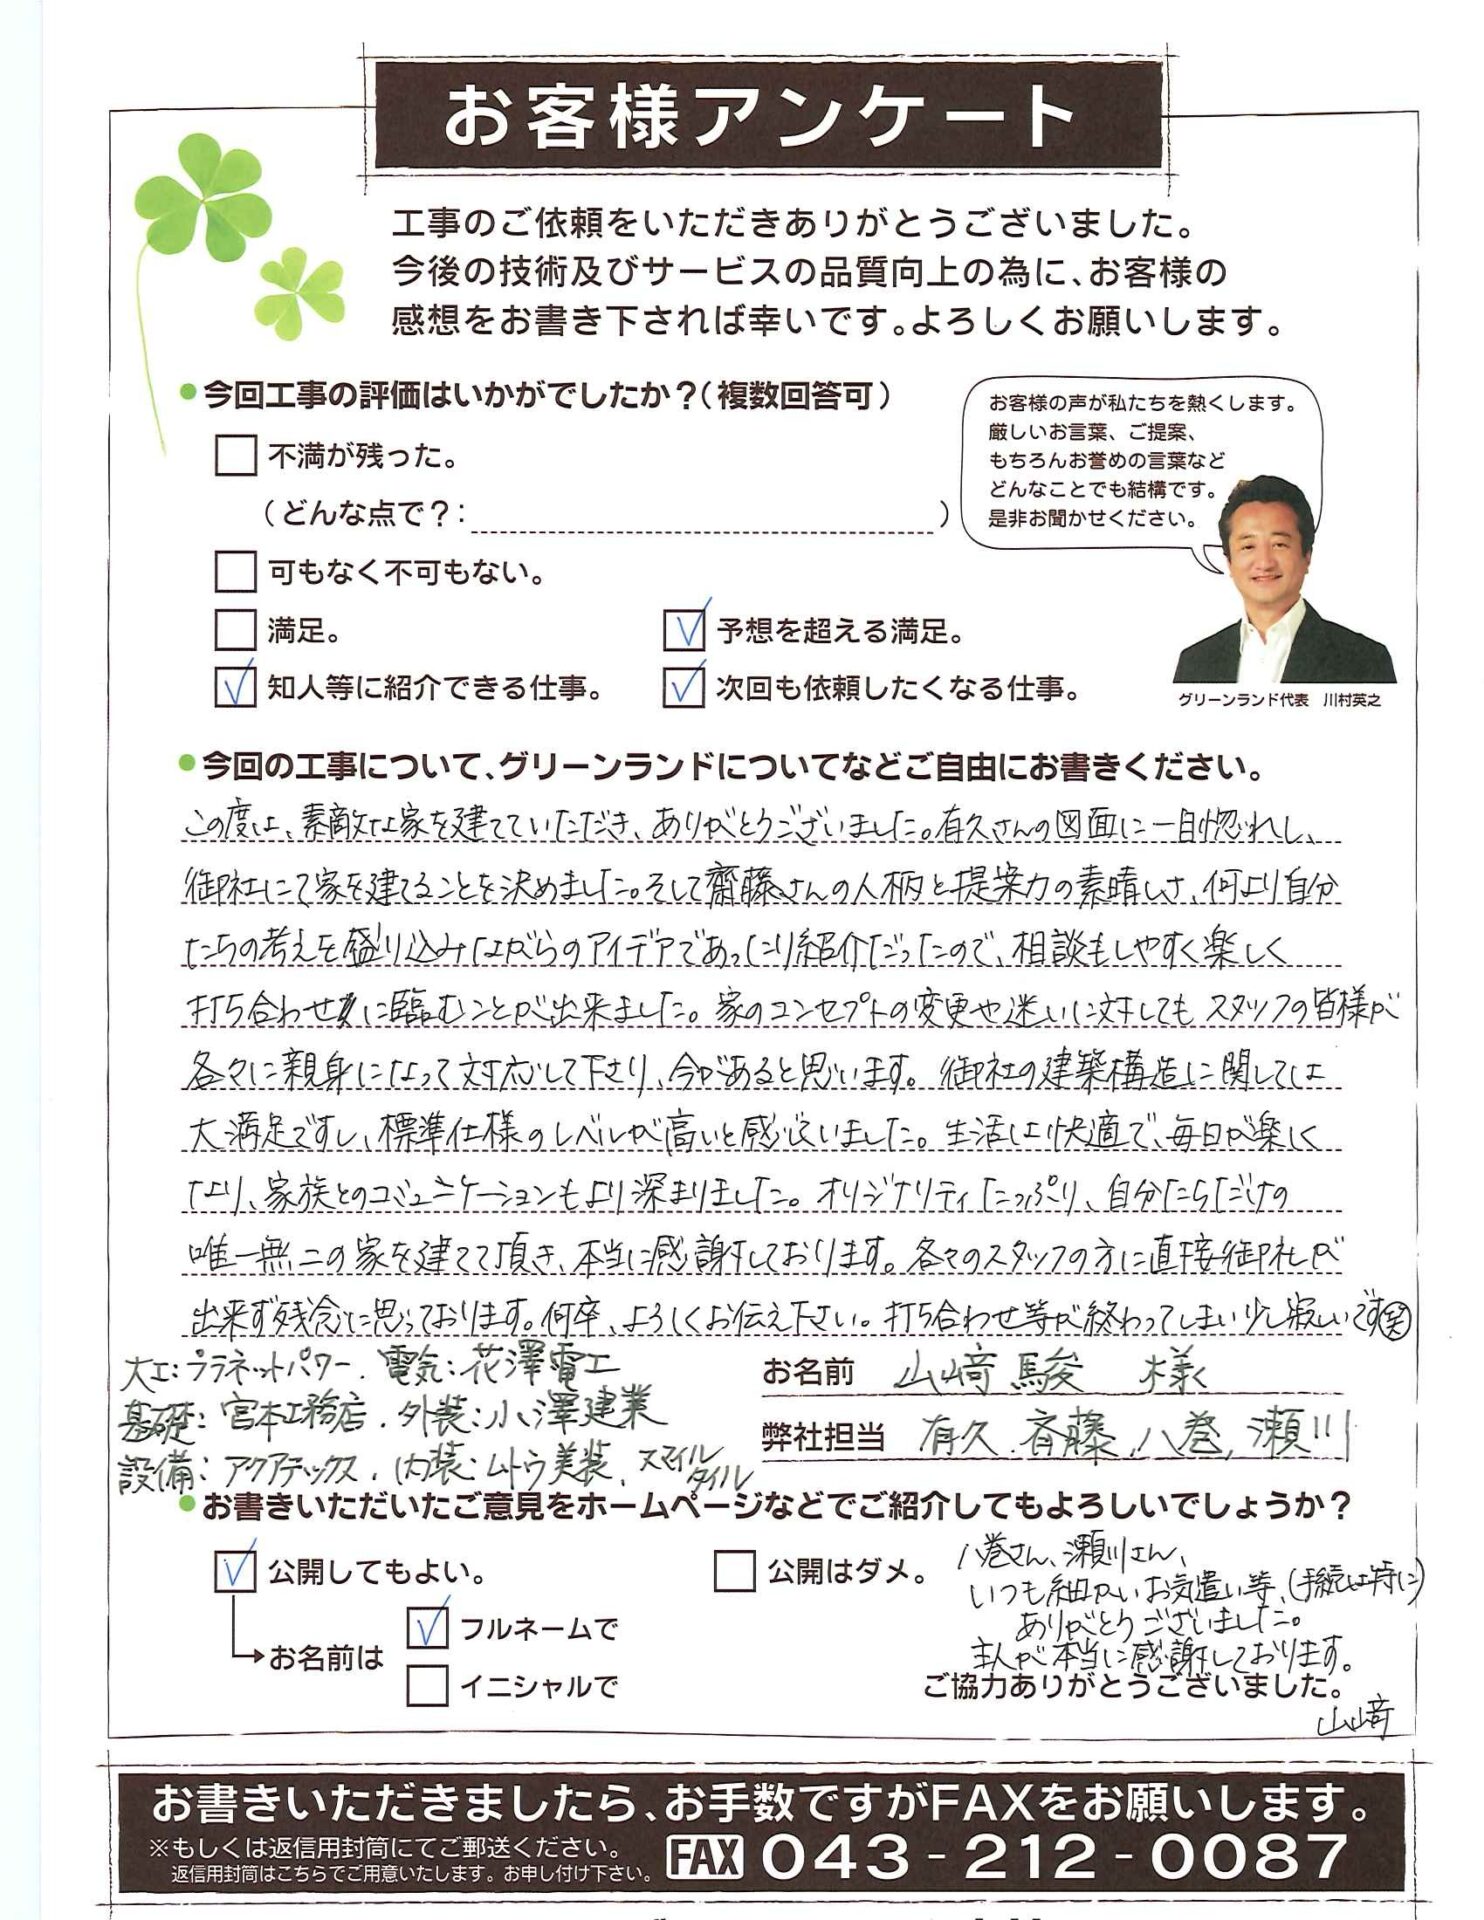 お客様アンケート
工事のご依頼をいただきありがとうございました。
今後の技術及びサービスの品質向上の為に、お客様の
感想をお書き下されば幸いです。よろしくお願いします。
今回工事の評価はいかがでしたか？（複数回答可）
お客様の声が私たちを熱くします。
厳しいお言葉、ご提案、
もちろんお誉めの言葉など
どんなことでも結構です。
是非お聞かせください。
グリーンランド代表　川村英之
不満が残った。
（どんな点で？：　）
可もなく不可もない。
満足。
予想を超える満足。
知人等に紹介できる仕事。
次回も依頼したくなる仕事。
今回の工事について、グリーンランドについてなどご自由にお書きください。
この度は、素敵な家を建てていただき、ありがとうございました。有久さんの図面に一目惚れし、
御社にて家を建てることを決めました。そして齋藤さんの人柄と提案力の素晴しさ、何より自分
たちの考えを盛り込みながらのアイデアであったり紹介だったので、相談もしやすく楽しく
打ち合わせに臨むことが出来ました。家のコンセプトの変更や迷いに対しても スタッフの皆様が
各々に親身になって対応して下さり、今があると思います。御社の建築構造に関しては
大満足ですし、標準仕様のレベルが高いと感じいました。生活は快適で、毎日が楽しく
なり、家族とのコミュニケーションもより深まりました。オリジナリティたっぷり、自分たちだけの
唯一無二の家を建てて頂き、本当に感謝しております。各々のスタッフの方に直接御礼が
出来ず残念に思っております。何卒、よろしくお伝え下さい。打ち合わせ等が終わってしまい少し寂しいです㊗笑
大工：プラネットパワー．電気：花澤電工
基礎：宮本工務店．外装：小澤建業
設備：アクアテックス．内装：ムトウ美装．スマイルタイル
お名前 山﨑 駿 様
弊社担当 有久．斉藤．八巻．瀬川
お書きいただいたご意見をホームページなどでご紹介してもよろしいでしょうか？
公開してもよい。
公開はダメ。
お名前は
フルネームで
イニシャルで
八巻さん、瀬川さん、
いつも細かいお気遣い等、（手続は特に）
ありがとうございました。
主人が本当に感謝しております。
ご協力ありがとうございました。
山﨑
お書きいただきましたら、お手数ですがFAXをお願いします。
※もしくは返信用封筒にてご郵送ください。
返信用封筒はこちらでご用意いたします。お申し付け下さい。
FAX 043-212-0087